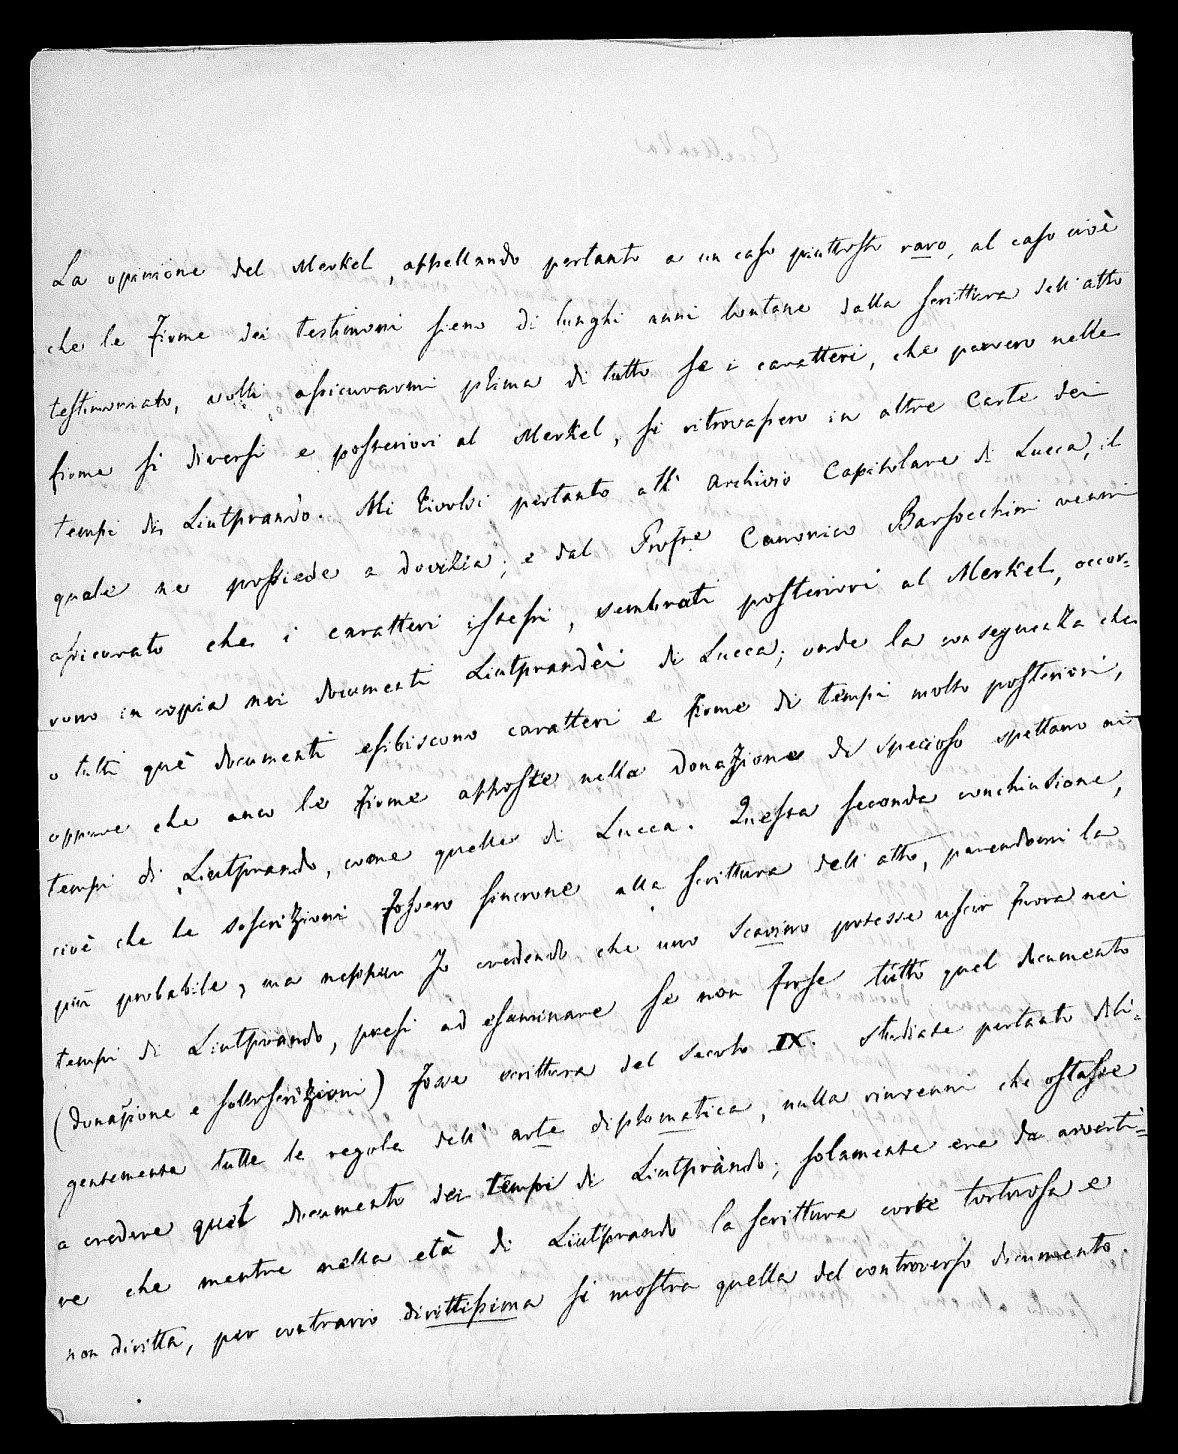 La opinione del Merkel, appellando pertanto a un caso piuttosto raro, al caso cioè
che le firme dei testimoni sieno di lunghi anni lontane dalla scrittura dell'atto
testimoniato, volli assicurarmi prima di tutto se i caratteri, che parvero nelle
firme sì diversi e posteriori al Merkel, si ritrovassero in altre Carte dei
tempi di Liutprando. Mi rivolsi pertanto all'Archivio Capitolare di Lucca, il
quale ne possiede a dovizia; e dal Profre Canonico Barsocchini venni
assicurato che i caratteri istessi, sembrati posteriori al Merkel, occor-
rono in copia nei documenti Liutprandèi di Lucca; onde la conseguenza che
o tutti què documenti esibiscono caratteri e firme di tempi molto posteriori,
oppure che anco le firme apposte nella donazione di Specioso spettano ai
tempi di Liutprando, come quelle di Lucca. Questa seconda conchiusione,
cioè che le soscrizioni fossero sincrone alla scrittura dell'atto, parendomi la
più probabile, ma neppur Jo credendo che uno scavino potesse uscir fuora nei
tempi di Liutprando, presi ad esaminare se non forse tutto quel documento
(donazione e sottoscrizioni) fosse scrittura del secolo IX. Studiate pertanto dili-
gentemente tutte le regole dell'arte diplomatica, nulla rinvenni che ostasse
a credere quel documento dei tempi di Liutprando; solamente era da avverti-
re che mentre nella età di Liutprando la scrittura corre tortuosa e
non diritta, per contrario dirittissima si mostra quella del controverso documento.